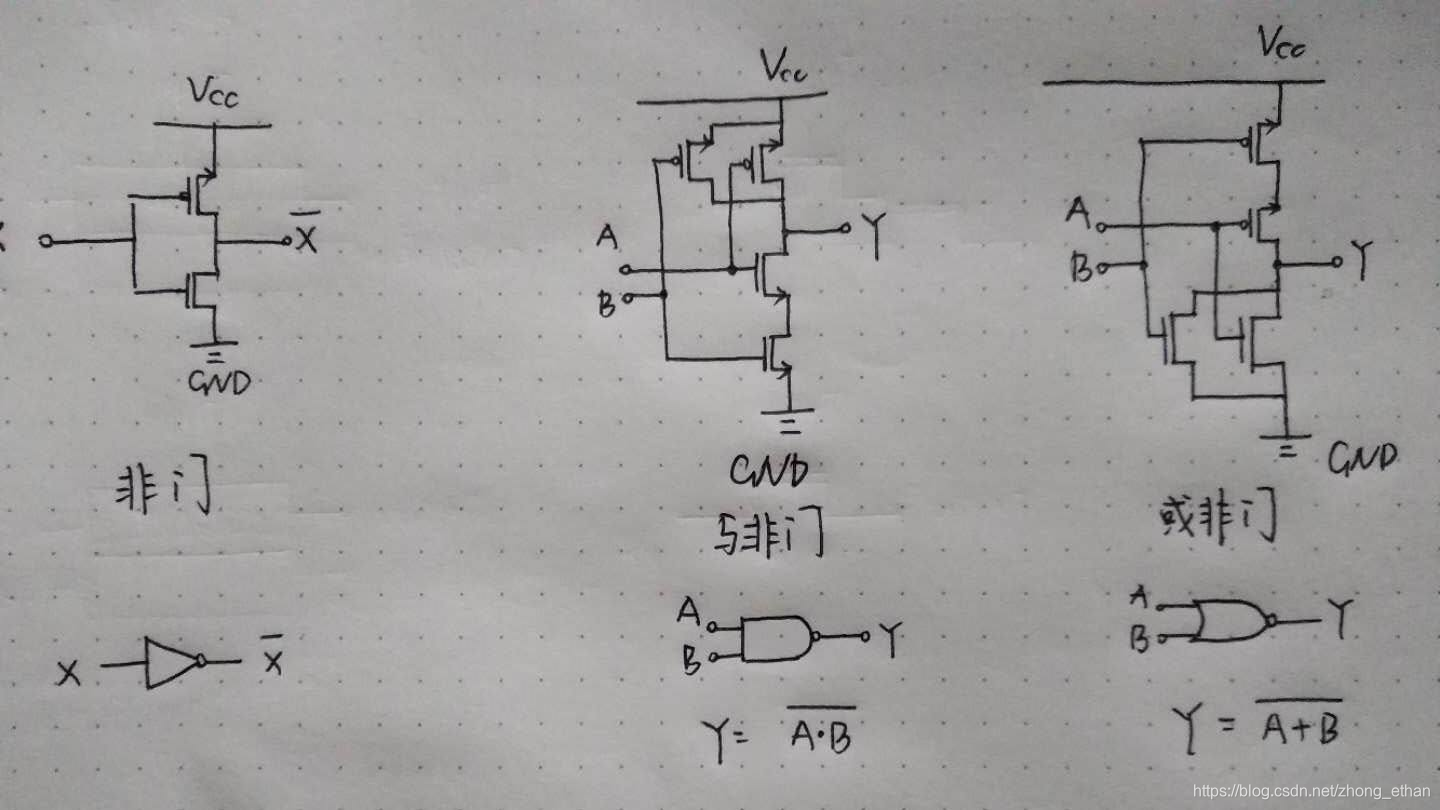 Vcc
X̅
GND
非门
X
X̅
Vcc
A
B
Y
GND
与非门
A
B
Y
Y= \overline{A·B}
Vcc
A
B
Y
GND
或非门
A
B
Y
Y = \overline{A+B}
https://blog.csdn.net/zhong_ethan